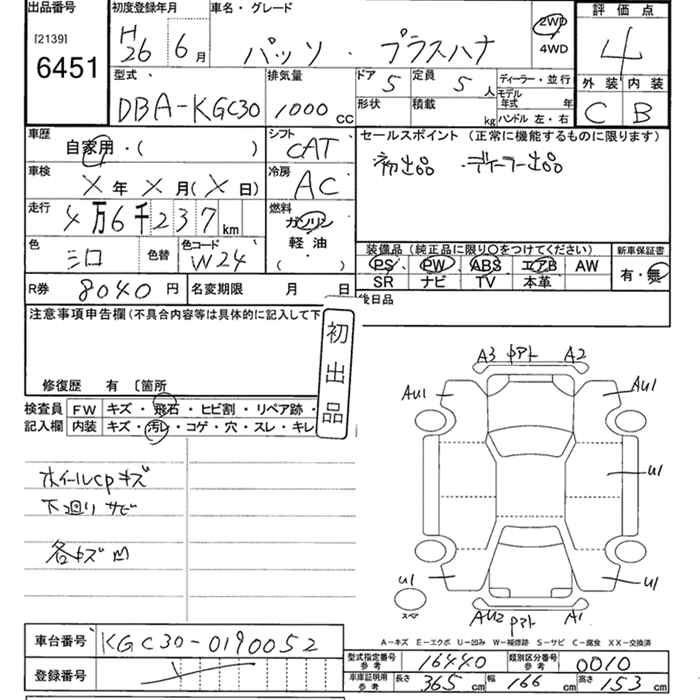 出品番号 初度登録年月 車名・グレード 評価点
[2139]
6451
H26年 6月 パッソ・プラスハナ 2WD 4WD 4
型式 排気量 ドア 5 定員 5人 ディーラー・並行 外装 内装
DBA-KGC30 1000cc 形状 積載 kg モデル年式 年 ハンドル 左・右 C B
車歴 シフト セールスポイント(正常に機能するものに限ります)
自家用・( ) CAT 初出品 ・ディーラー出品
車検 冷房
X年X月(X日) AC
走行 燃料
4万6千237km ガソリン
色 色替 色コード 軽油 装備品(純正品に限り○をつけてください) 新車保証書
シロ W24 ・( ) PS PW ABS エアB AW 有・無
SR ナビ TV 本革
R券 8040円 名変期限 月 日 後日品
注意事項申告欄(不具合内容等は具体的に記入して下
初出品
修復歴 有 〔箇所
検査員 FW キズ・飛石・ヒビ割・リペア跡・
記入欄 内装 キズ・汚レ・コゲ・穴・スレ・キレ
ホイールcpキズ
下廻りサビ
各キズ凹
A3 中アト A2
AU1 AU1
U1
U1 U1
スペア
AU2 アト A1
A-キズ E-エクボ U-凹み W-補修跡 S-サビ C-腐食 XX-交換済
車台番号 KGC30-0190052
型式指定番号参考 16440 類別区分番号参考 0010
登録番号
車庫証明用参考 長さ 365cm 幅 166cm 高さ 153cm